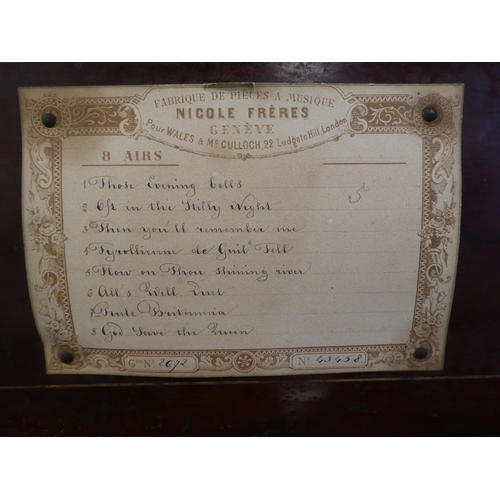 FABRIQUE DE PIÈCES A MUSIQUE
NICOLE FRÈRES
GENÈVE
Pour WALES & Mc CULLOCH, 22 Ludgate Hill, London
8 AIRS
5
1 Those Evening bells
2 Oft in the Stilly Night
3 Then you'll remember me
4 Tyrollienne de Guile Tell
5 Flow on Thou shining river
6 All's Well Duet
7 Rule Britannia
8 God Save the Queen
Gme No 2672
No 43458